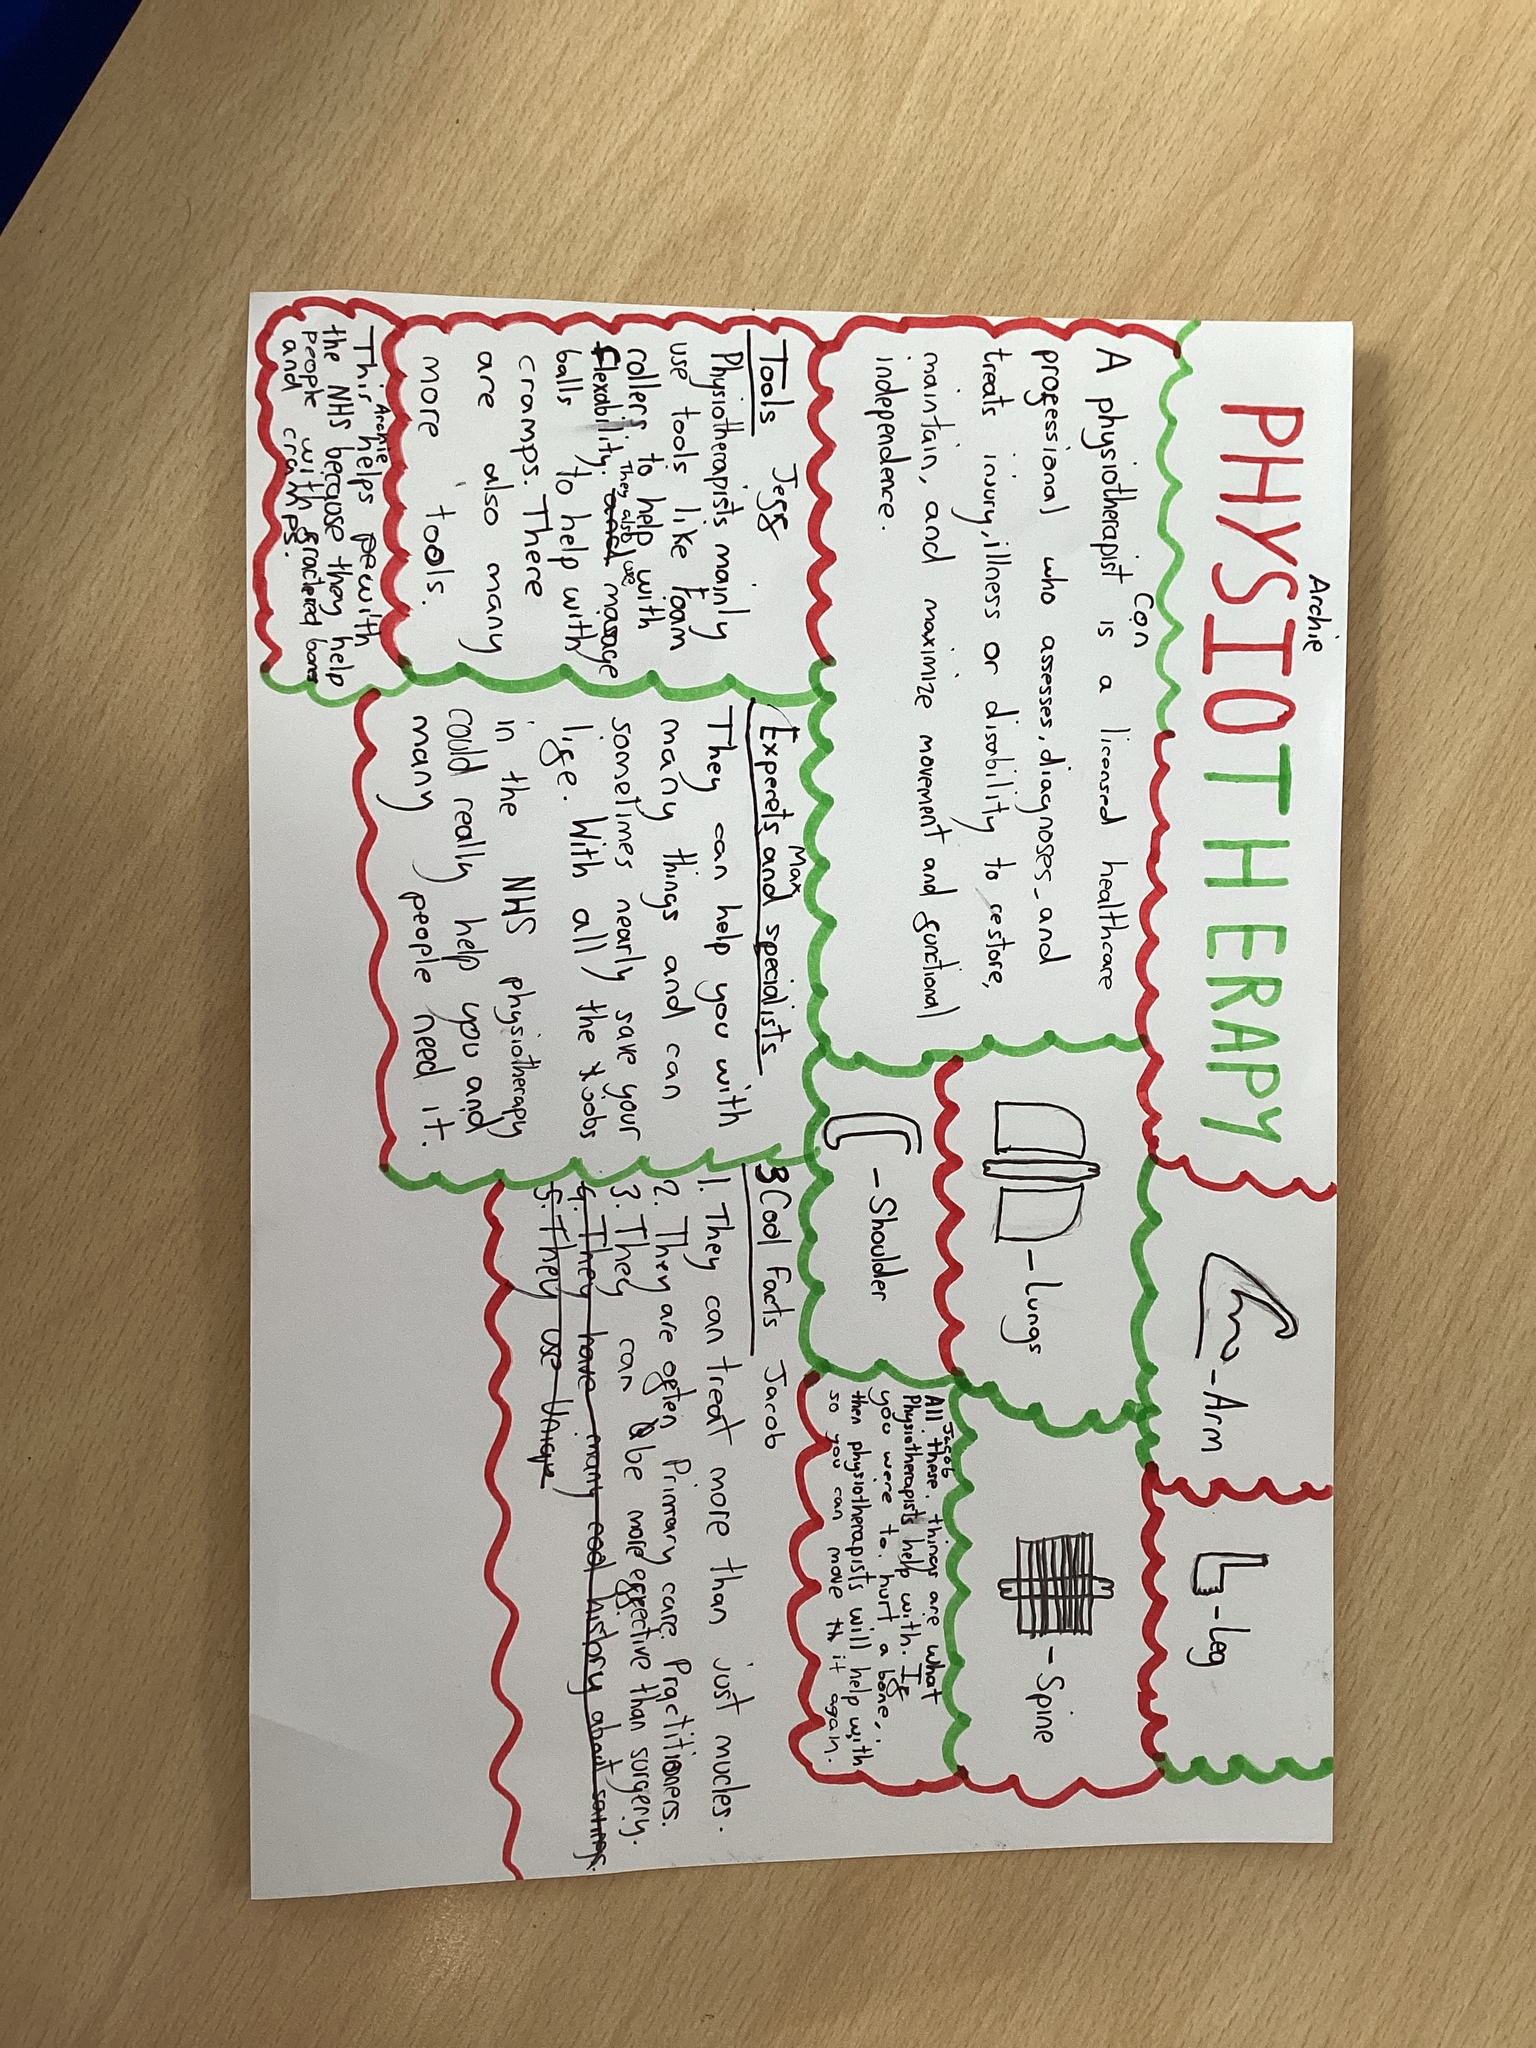 Archie
PHYSIOTHERAPY
Con
A physiotherapist is a licensed healthcare
professional who assesses, diagnoses, and
treats injury, illness or disability to restore,
maintain, and maximize movement and functional
independence.
-Arm
-Leg
-Lungs
-Spine
-Shoulder
Jacob
All these things are what
Physiotherapists help with. If
you were to hurt a bone,
then physiotherapists will help with
so you can move th it again.
Tools Jeff
Physiotherapists mainly
use tools like foam
rollers to help with
flexability. and They also use massage
balls to help with
cramps. There
are also many
more tools.
Archie
This helps pewith
the NHS because they help
people with fractered bones
and cramps.
Max
Experets and specialists
They can help you with
many things and can
sometimes nearly save your
life. With all the jobs
in the NHS physiotherapy
could really help you and
many people need it.
3 Cool Facts Jacob
1. They can treat more than just mucles.
2. They are often Primary care Practitioners.
3. They can be more effective than surgery.
4. They have many cool history about
5. They use Unique